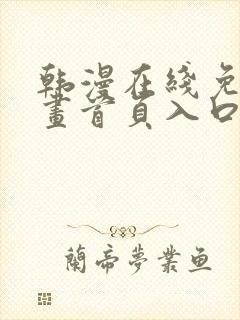 韩漫在线免
畫首頁入口
蘭帝夢業鱼